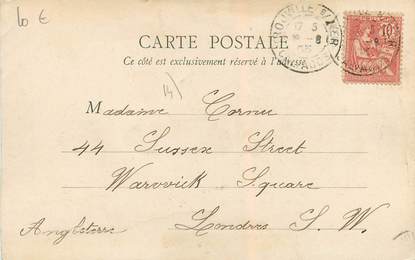 10 €
CARTE POSTALE
Ce côté est exclusivement réservé à l'adresse
14
Madame Cornu
44 Sussex Street
Warwick Square
Angleterre Londres S. W.